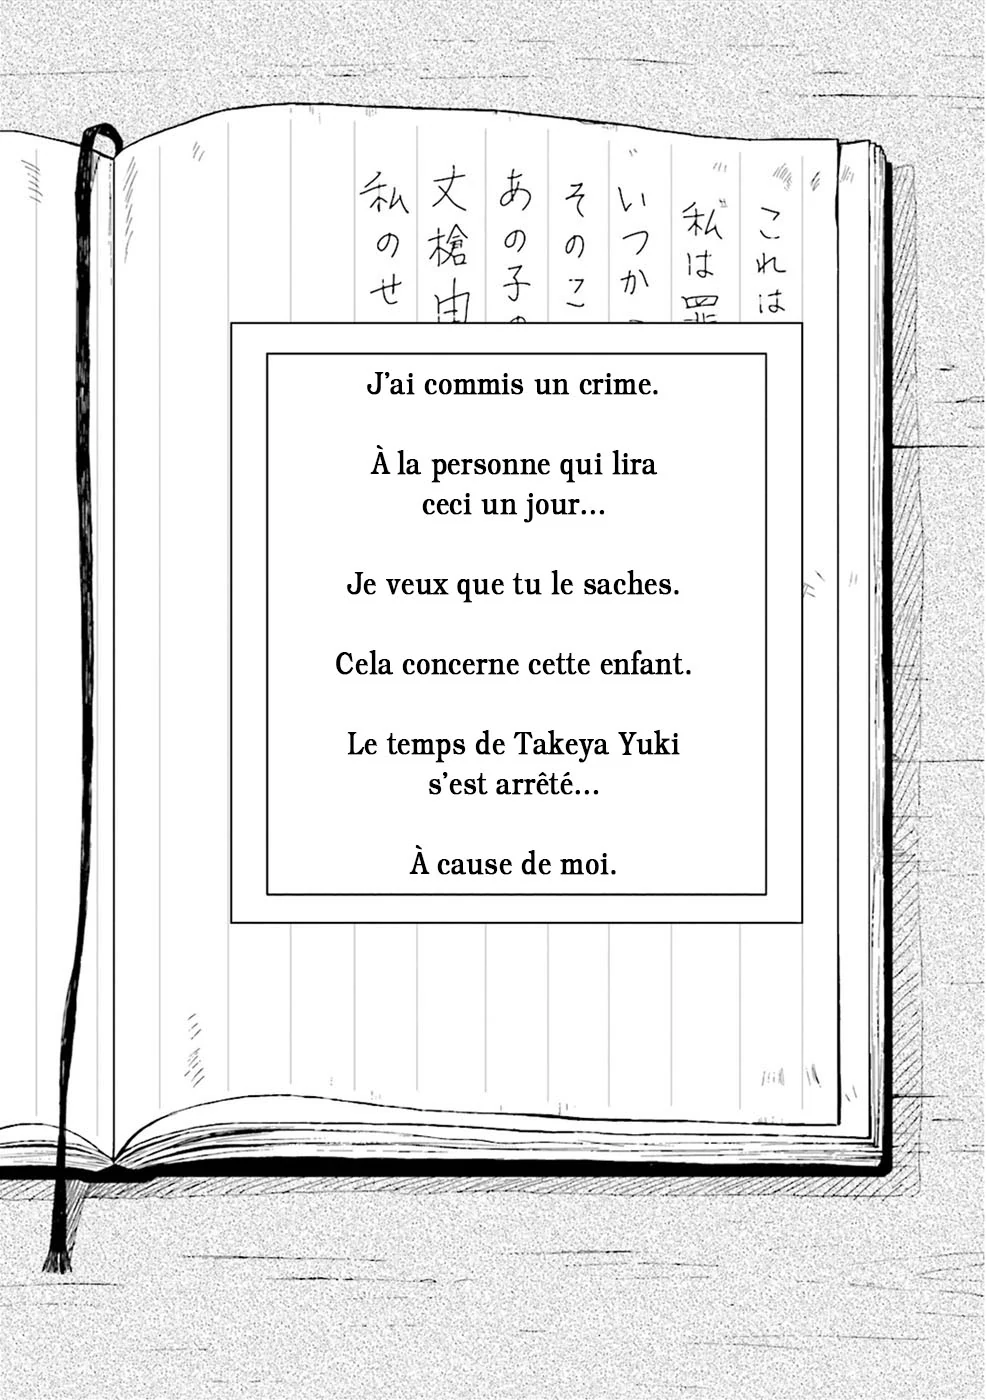 これは
私は罪
いつか
そのこ
あの子の
丈槍由
私のせ
J'ai commis un crime.
À la personne qui lira
ceci un jour...
Je veux que tu le saches.
Cela concerne cette enfant.
Le temps de Takeya Yuki
s'est arrêté...
À cause de moi.